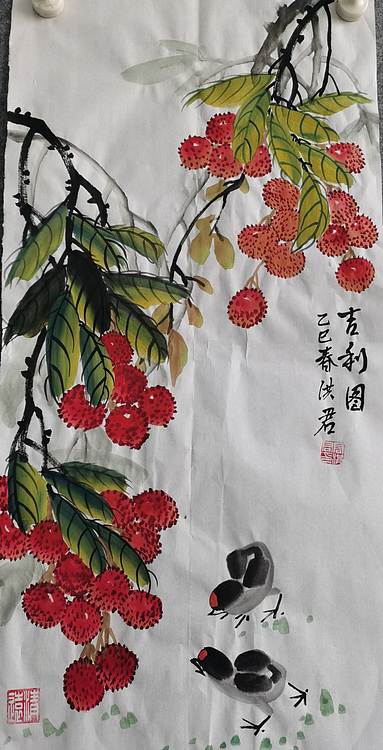 吉利图
乙巳春洪君